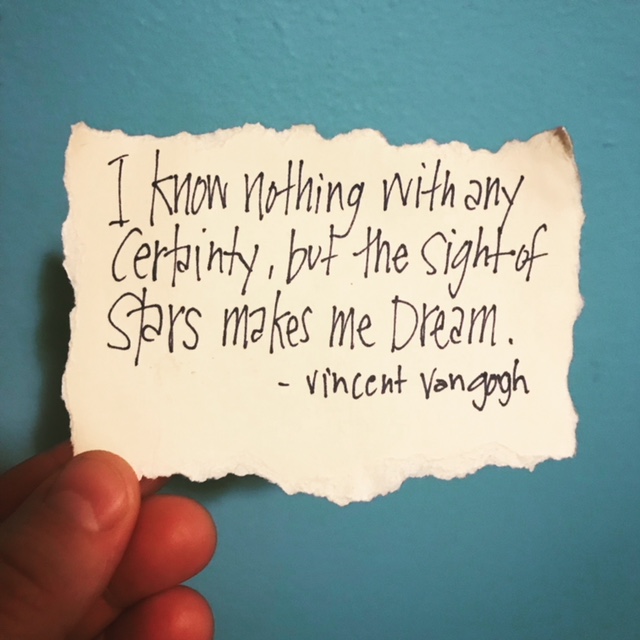 I know nothing with any
Certainty, but the sight of
Stars makes me Dream.
- Vincent Vangogh